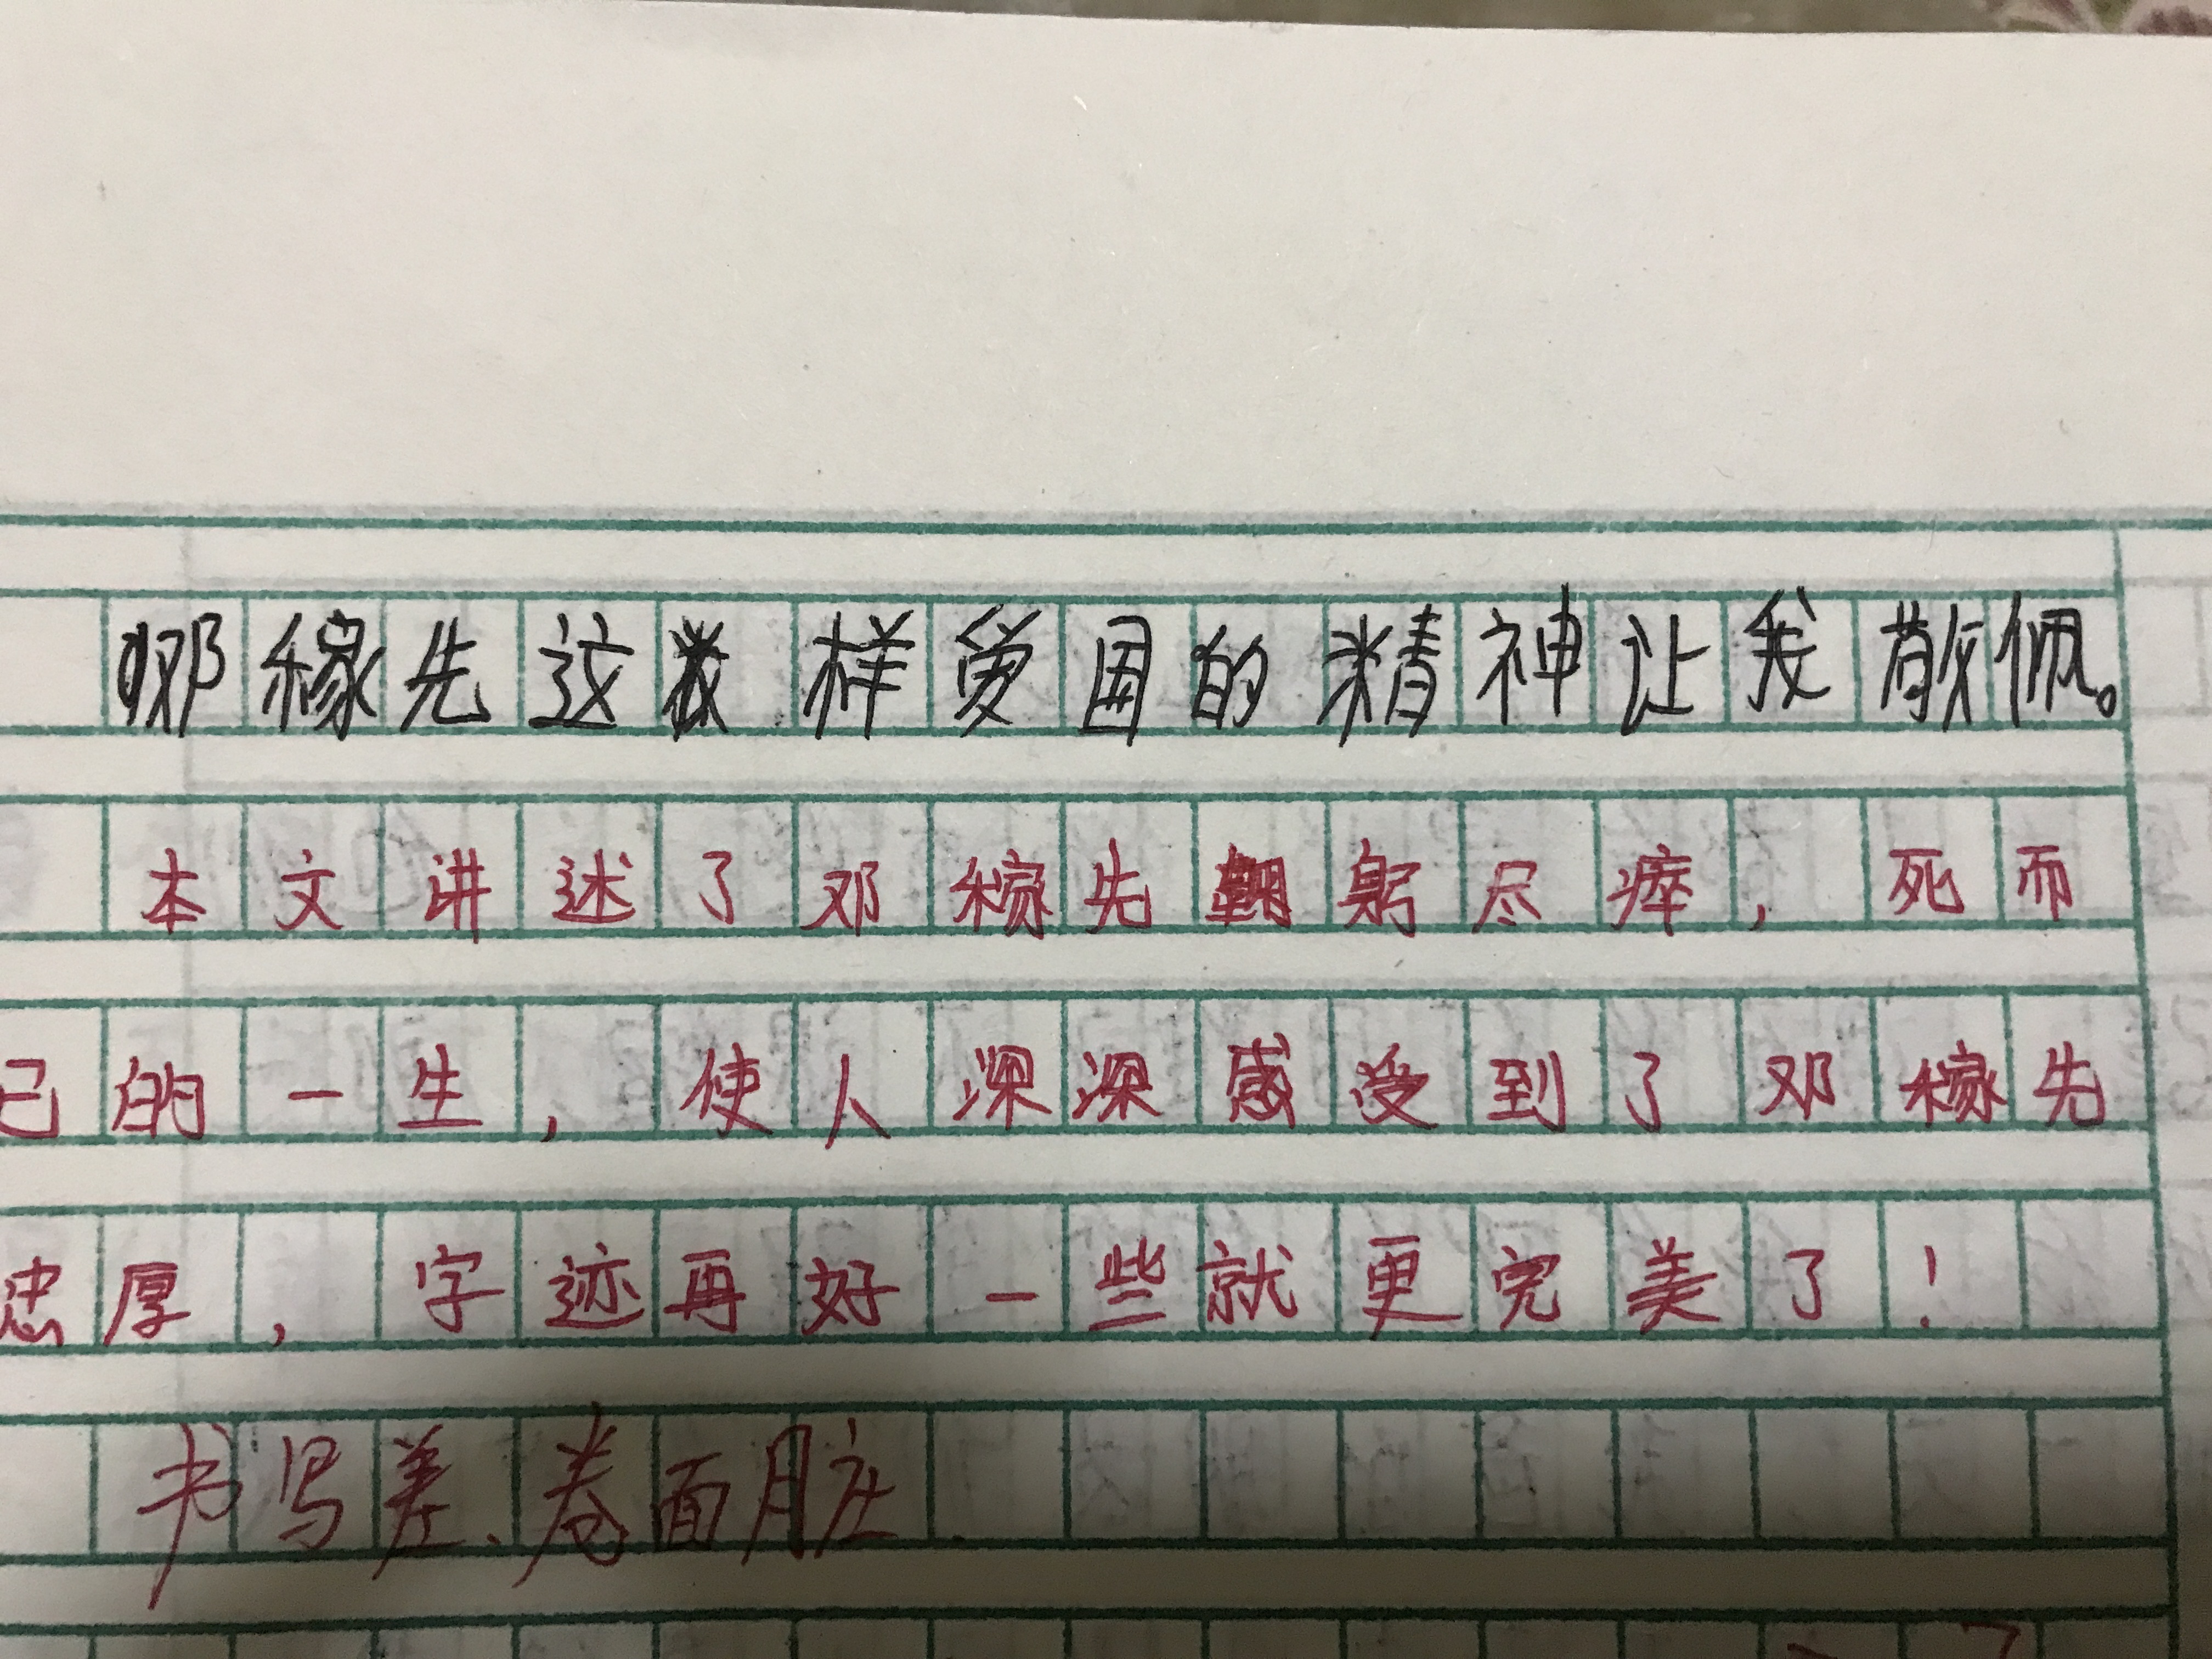 邓稼先这样爱国的精神让我敬佩。
本文讲述了邓稼先鞠躬尽瘁，死而
己的一生，使人深深感受到了邓稼先
忠厚，字迹再好一些就更完美了！
书写差、卷面脏